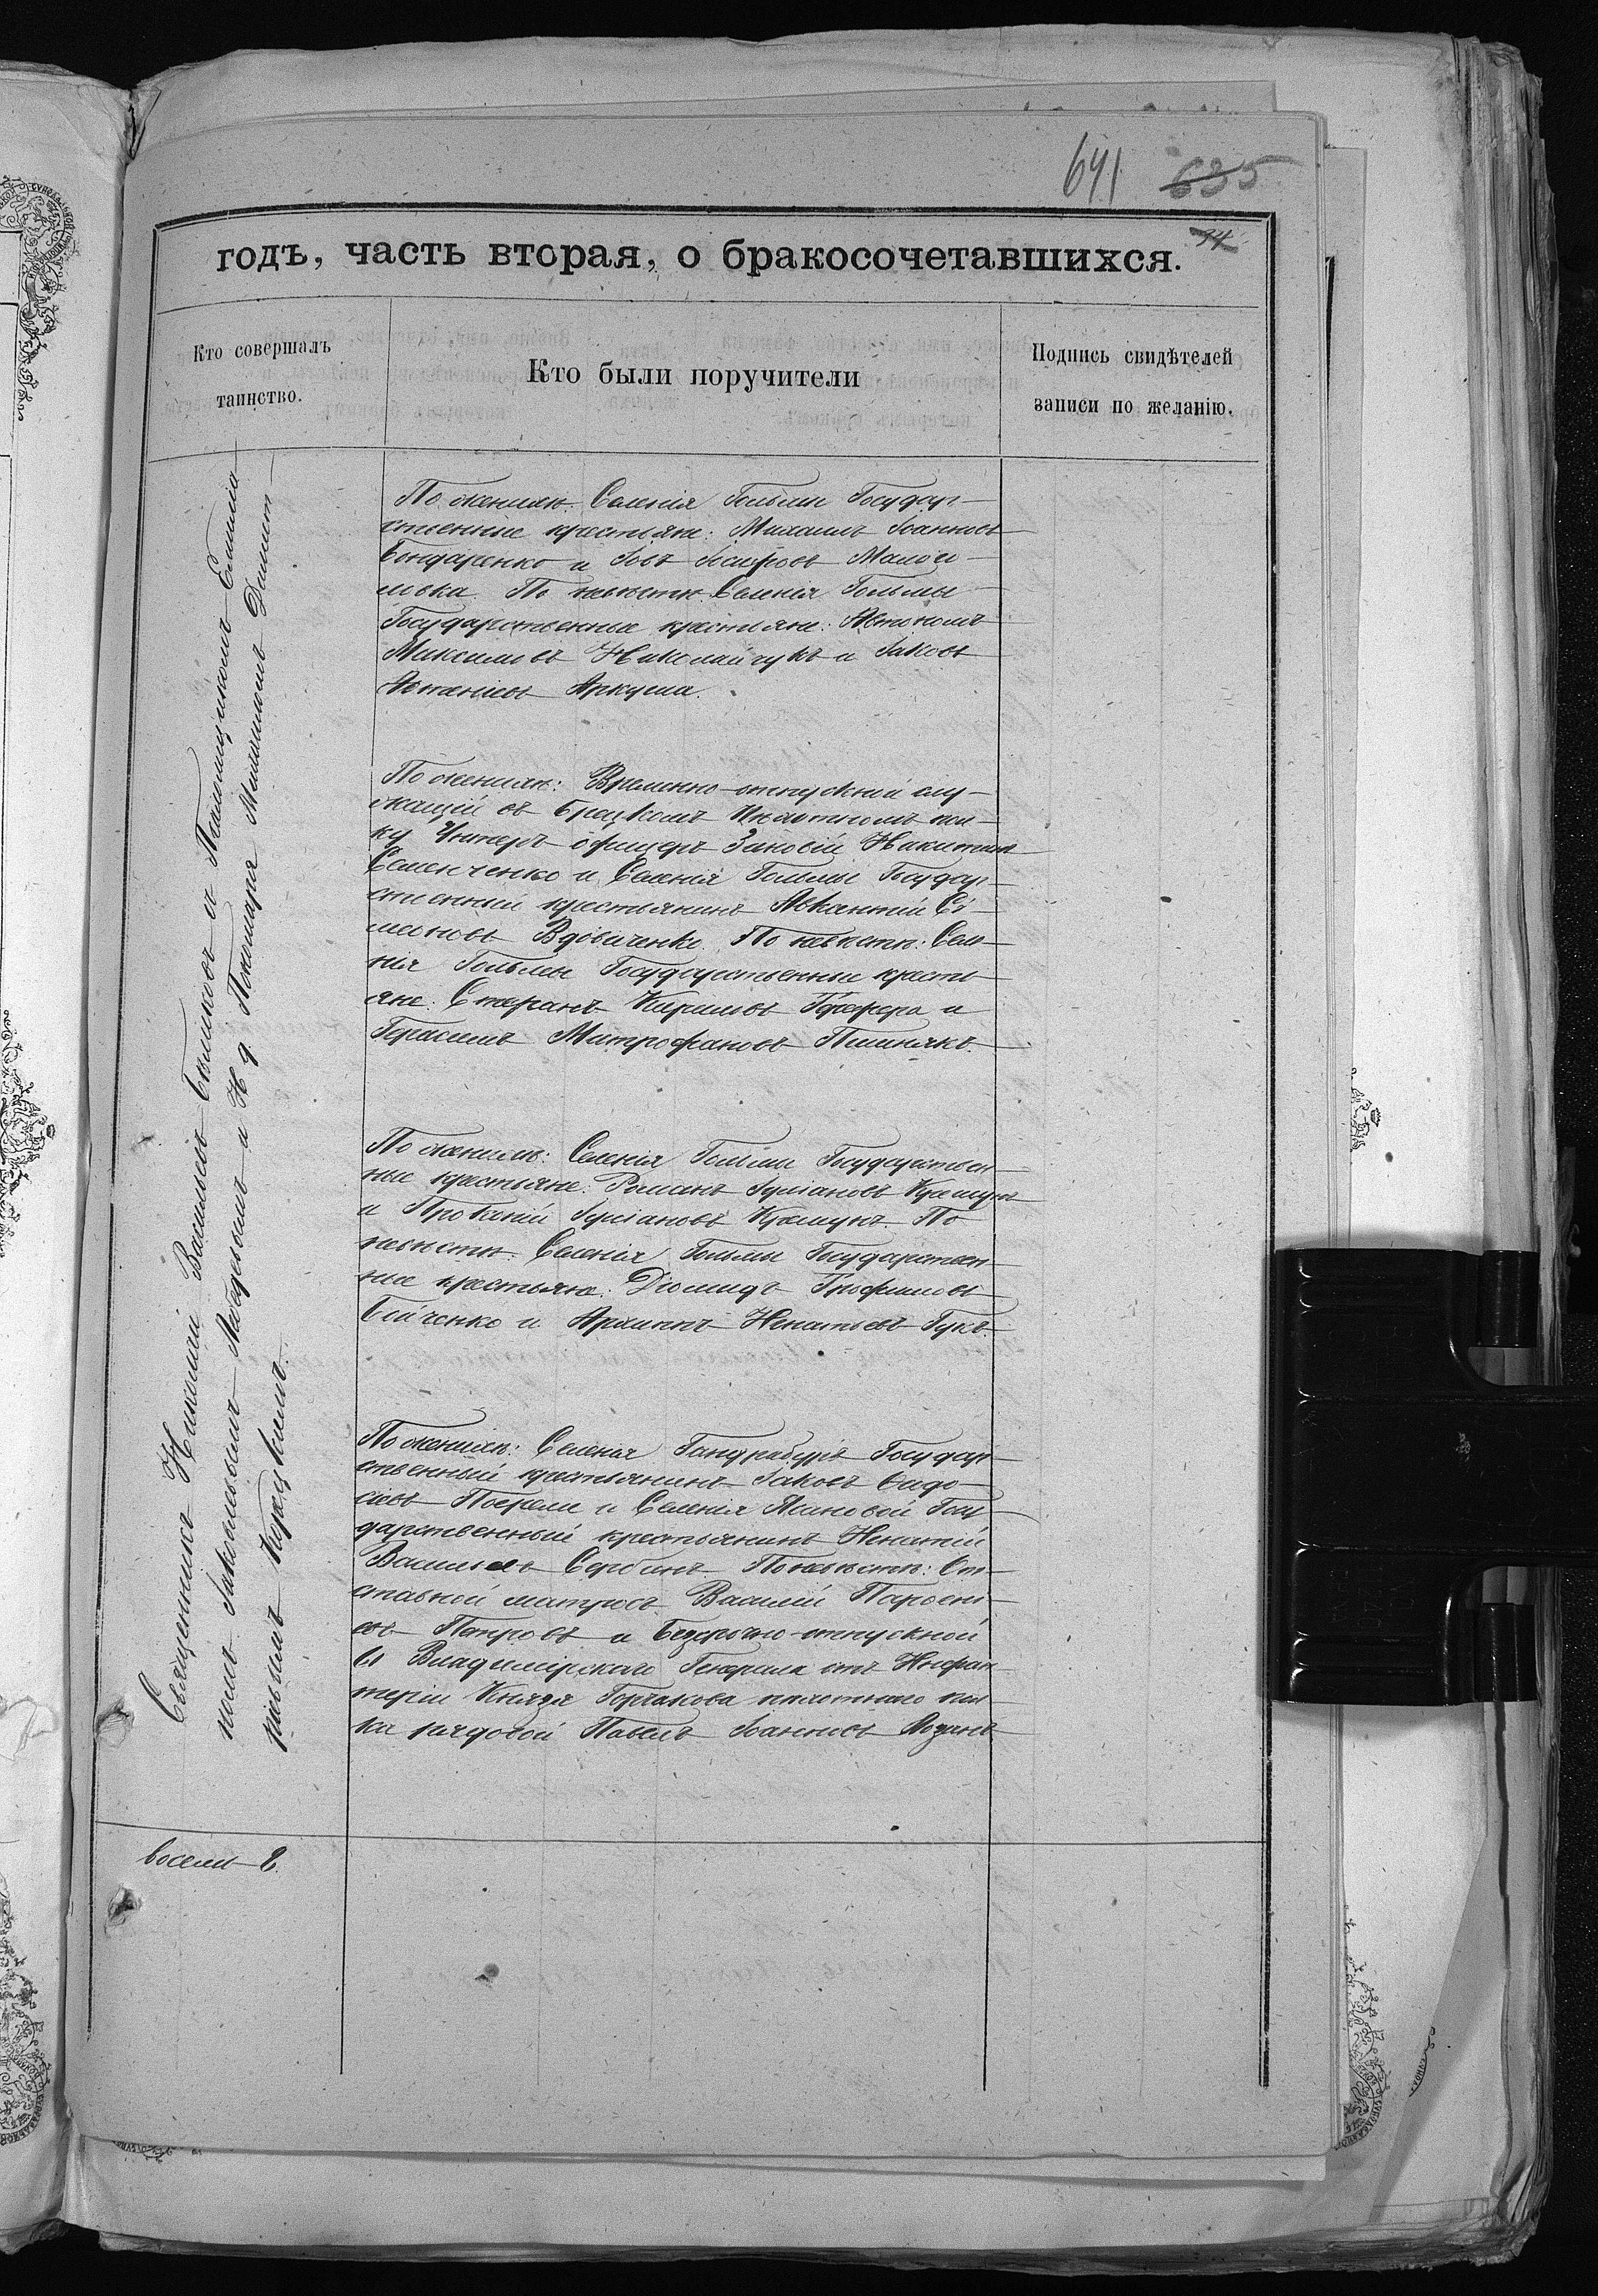 641 635
годъ, часть вторая, о бракосочетавшихся.
Кто совершалъ
таинство.
Кто были поручители
Подпись свидѣтелей
записи по желанію.
Священникъ Николай Васильевъ съ Псаломщикомъ Емилiа-
номъ Іаковлевымъ и И. д. Пономаря Михаиломъ Даміат-
По женихѣ: Селенія Гольмы Государ-
ственные крестьяне: Михаилъ Іоанновъ
Бондаренко и Іовъ
По невѣстѣ: Селенія Гольмы
Государственные крестьяне: Автономъ
Максимовъ Николайчукъ и Іаковъ
Аркуша.
По женихѣ: Временно-отпускной слу-
жащій въ Брестскомъ Пѣхотномъ пол-
ку Унтеръ-офицеръ Зиновій Никитинъ
Семенченко и Селенія Гольмы Государ-
ственный крестьянинъ Авксентій Сѵ-
меоновъ Вдовиченко. По невѣстѣ: Селе-
нія Гольмы Государственные кресть-
яне: Стефанъ Кириловъ и
Герасимъ Митрофановъ
По женихѣ: Селенія Гольмы Государствен-
ные крестьяне: Романъ Іуліановъ Крамунъ
и Прокопій Іуліановъ Крамунъ. По
невѣстѣ: Селенія Гольмы Государствен-
ные крестьяне: Діомидъ Трофимовъ
Бойченко и Архиппъ Игнатьевъ Гукъ.
По женихѣ: Селенія Гандрабуръ Государ-
ственный крестьянинъ Іаковъ Ѳедо-
сіевъ и Селенія Ясиновой Госу-
дарственный крестьянинъ Игнатій
Васильевъ Сербинъ. По невѣстѣ: От-
ставной матросъ Василій
Петровъ и Безсрочно-отпускной
61 Владимірскаго Генерала отъ Инфан-
теріи Князя Горчакова пѣхотнаго пол-
ка рядовой Павелъ Іоанновъ Лозинъ
восемь 8.